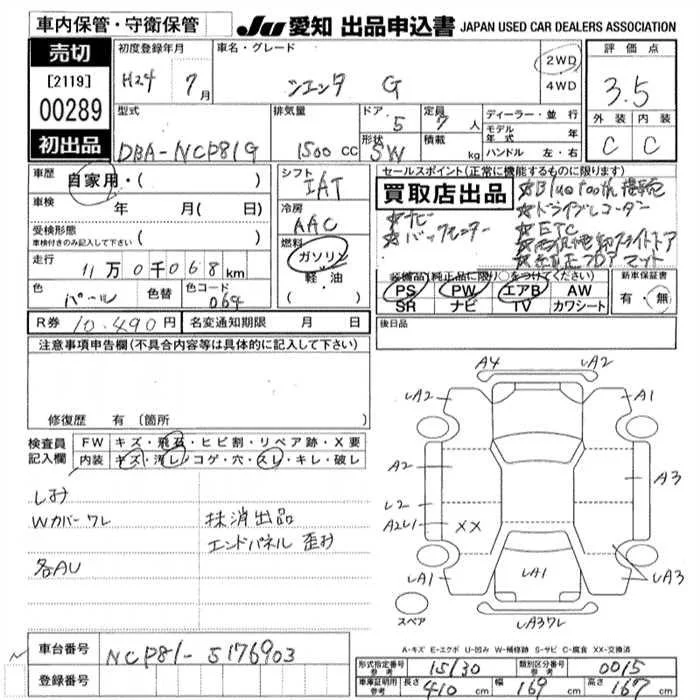 車内保管・守衛保管
JU 愛知 出品申込書 JAPAN USED CAR DEALERS ASSOCIATION
売切
[2119]
00289
初出品
初度登録年月
H24 7月
車名・グレード
シエンタ G
2WD
4WD
評価点
3.5
外装 内装
C C
型式
DBA-NCP81G
排気量
1500 cc
ドア 5
形状 SW
定員 7 人
積載 kg
ディーラー・並行
モデル年式 年
ハンドル 左・右
車歴
自家用・( )
車検
年 月( 日)
受検形態
車検付きのみ記入して下さい
・( )
走行
11万0千068km
色 パール
色替
色コード 064
シフト
IAT
冷房
AAC
燃料
ガソリン
軽油
・( )
セールスポイント(正常に機能するものに限ります)
買取店出品
☆ナビ
☆バックモニター
☆Bluetooth接続
☆ドライブレコーダー
☆ETC
☆純正フロアマット
装備品(純正品に限り○をつけてください)
PS PW エアB AW
SR ナビ TV カワシート
新車保証書
有・無
R券 10,490円
名変通知期限 月 日
後日品
注意事項申告欄(不具合内容等は具体的に記入して下さい)
修復歴 有 〔箇所
検査員記入欄
FW キズ・飛石・ヒビ割・リペア跡・X要
内装 キズ・汚レ・コゲ・穴・スレ・キレ・破レ
しみ
Wカバーワレ
各AU
抹消出品
エンドパネル 歪み
A4 UA2
UA2 A1
A2 A3
U2
A2U1 XX
UA1 UA1 UA3
UA37レ
スペア
A-キズ E-エクボ U-凹み W-補修跡 S-サビ C-腐食 XX-交換済
車台番号
NCP81-5176903
登録番号
形式指定番号 参考 15130
類別区分番号 参考 0015
車庫証明用 参考 長さ 410 cm 幅 169 cm 高さ 167 cm